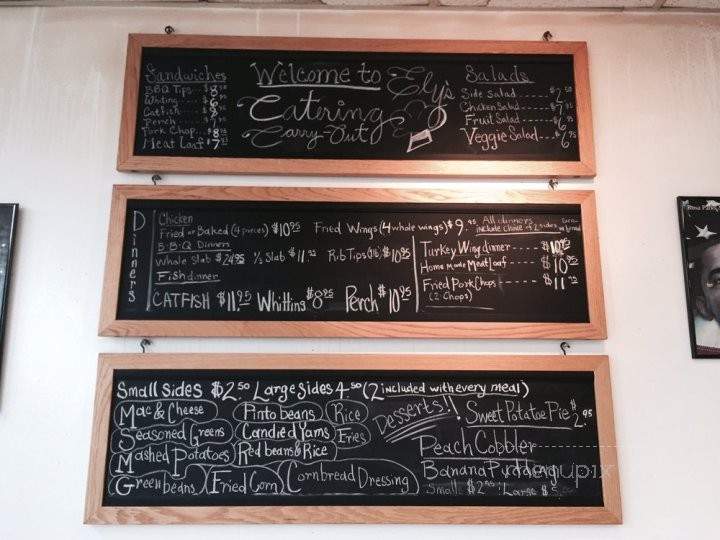 Sandwiches
BBQ Tips
Whiting
Catfish
Perch
Pork Chop
Meat Loaf
Welcome to
Ely's
Catering
Carry-Out
Salads
Side Salad
Chicken Salad
Fruit Salad
Veggie Salad
Dinners
Chicken
Fried or Baked (4 pieces) $10.95
Fried Wings (4 whole wings) $9.95
All dinners
include choice of 2 sides
B-B-Q Dinners
Whole Slab $24.95 ½ Slab $11.95 Rib Tips (1lb) $10.95
Fish dinner
CATFISH $11.95 Whitting $8.95 Perch $10.95
Turkey Wing dinner
Home Made Meat Loaf $10.95
Fried Pork Chops
(2 Chops)
Small Sides $2.50 Large Sides 4.50 (2 included with every meal)
Mac & Cheese
Pinto beans
Rice
Seasoned Greens
Candied Yams
Fries
Mashed Potatoes
Red beans & Rice
Green beans
Fried Corn
Cornbread Dressing
Desserts!!
Sweet Potatoe Pie $2.95
Peach Cobbler
Banana Pudding
Small $2.50 Large
Rosa Parks
menupix